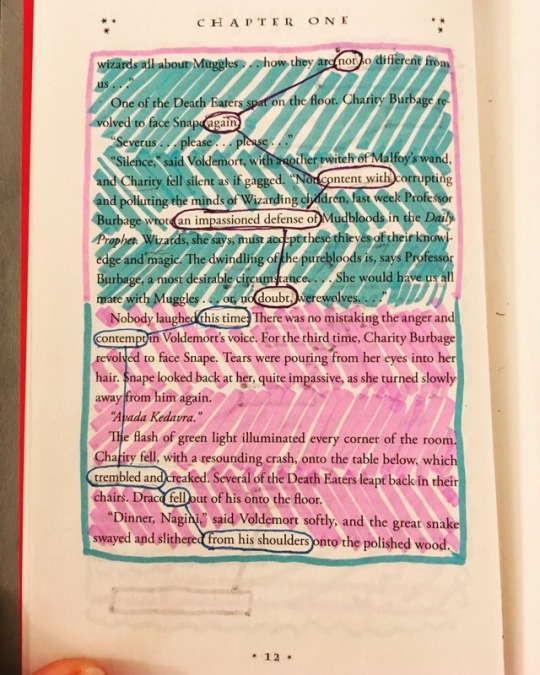 CHAPTER ONE
wizards all about Muggles . . . how they are not so different from
us . . ."
One of the Death Eaters spat on the floor. Charity Burbage re-
volved to face Snape again.
"Severus . . . please . . . please . . ."
"Silence," said Voldemort, with another twitch of Malfoy's wand,
and Charity fell silent as if gagged. "Not content with corrupting
and polluting the minds of Wizarding children, last week Professor
Burbage wrote an impassioned defense of Mudbloods in the Daily
Prophet. Wizards, she says, must accept these thieves of their knowl-
edge and magic. The dwindling of the purebloods is, says Professor
Burbage, a most desirable circumstance. . . . She would have us all
mate with Muggles . . . or, no doubt, werewolves. . . ."
Nobody laughed this time: There was no mistaking the anger and
contempt in Voldemort's voice. For the third time, Charity Burbage
revolved to face Snape. Tears were pouring from her eyes into her
hair. Snape looked back at her, quite impassive, as she turned slowly
away from him again.
"Avada Kedavra."
The flash of green light illuminated every corner of the room.
Charity fell, with a resounding crash, onto the table below, which
trembled and creaked. Several of the Death Eaters leapt back in their
chairs. Draco fell out of his onto the floor.
"Dinner, Nagini," said Voldemort softly, and the great snake
swayed and slithered from his shoulders onto the polished wood.
12